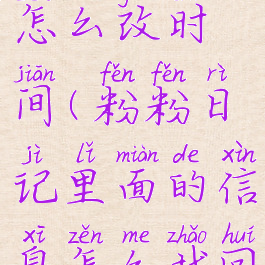 怎么改时
jiān fěn fěn rì
间(粉粉日
jì lǐ miàn de xìn
记里面的信
xī zěn me zhǎo huí
息怎么找回